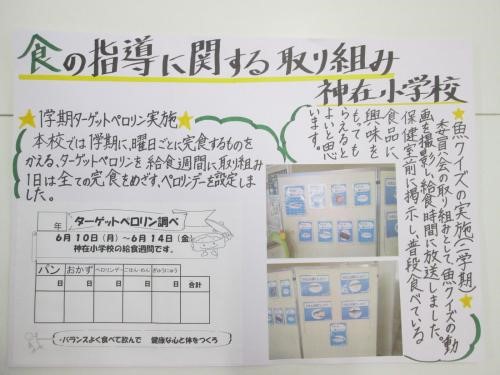 食の指導に関する取り組み
神在小学校
1学期ターゲットペロリン実施
本校では1学期に、曜日ごとに完食するものを
かえる、ターゲットペロリンを給食週間に取り組み
1日は全ての完食をめざす、ペロリンデーを設定しま
した。
年
ターゲットペロリン調べ
6月10日(月)～6月14日(金)
神在小学校の給食週間です。
パン おかず ペロリンデー ごはん・めん ぎゅうにゅう
日 日 日 日 日 合計
・バランスよく食べて飲んで 健康な心と体をつくろう
魚クイズの実施(二学期)
委員会の取り組みとして、魚クイズの動
画を撮影し、給食時間に放送しました。
保健室前に掲示し、普段食べている
食品に、
興味を
もっても
らえると
よいと思
います。